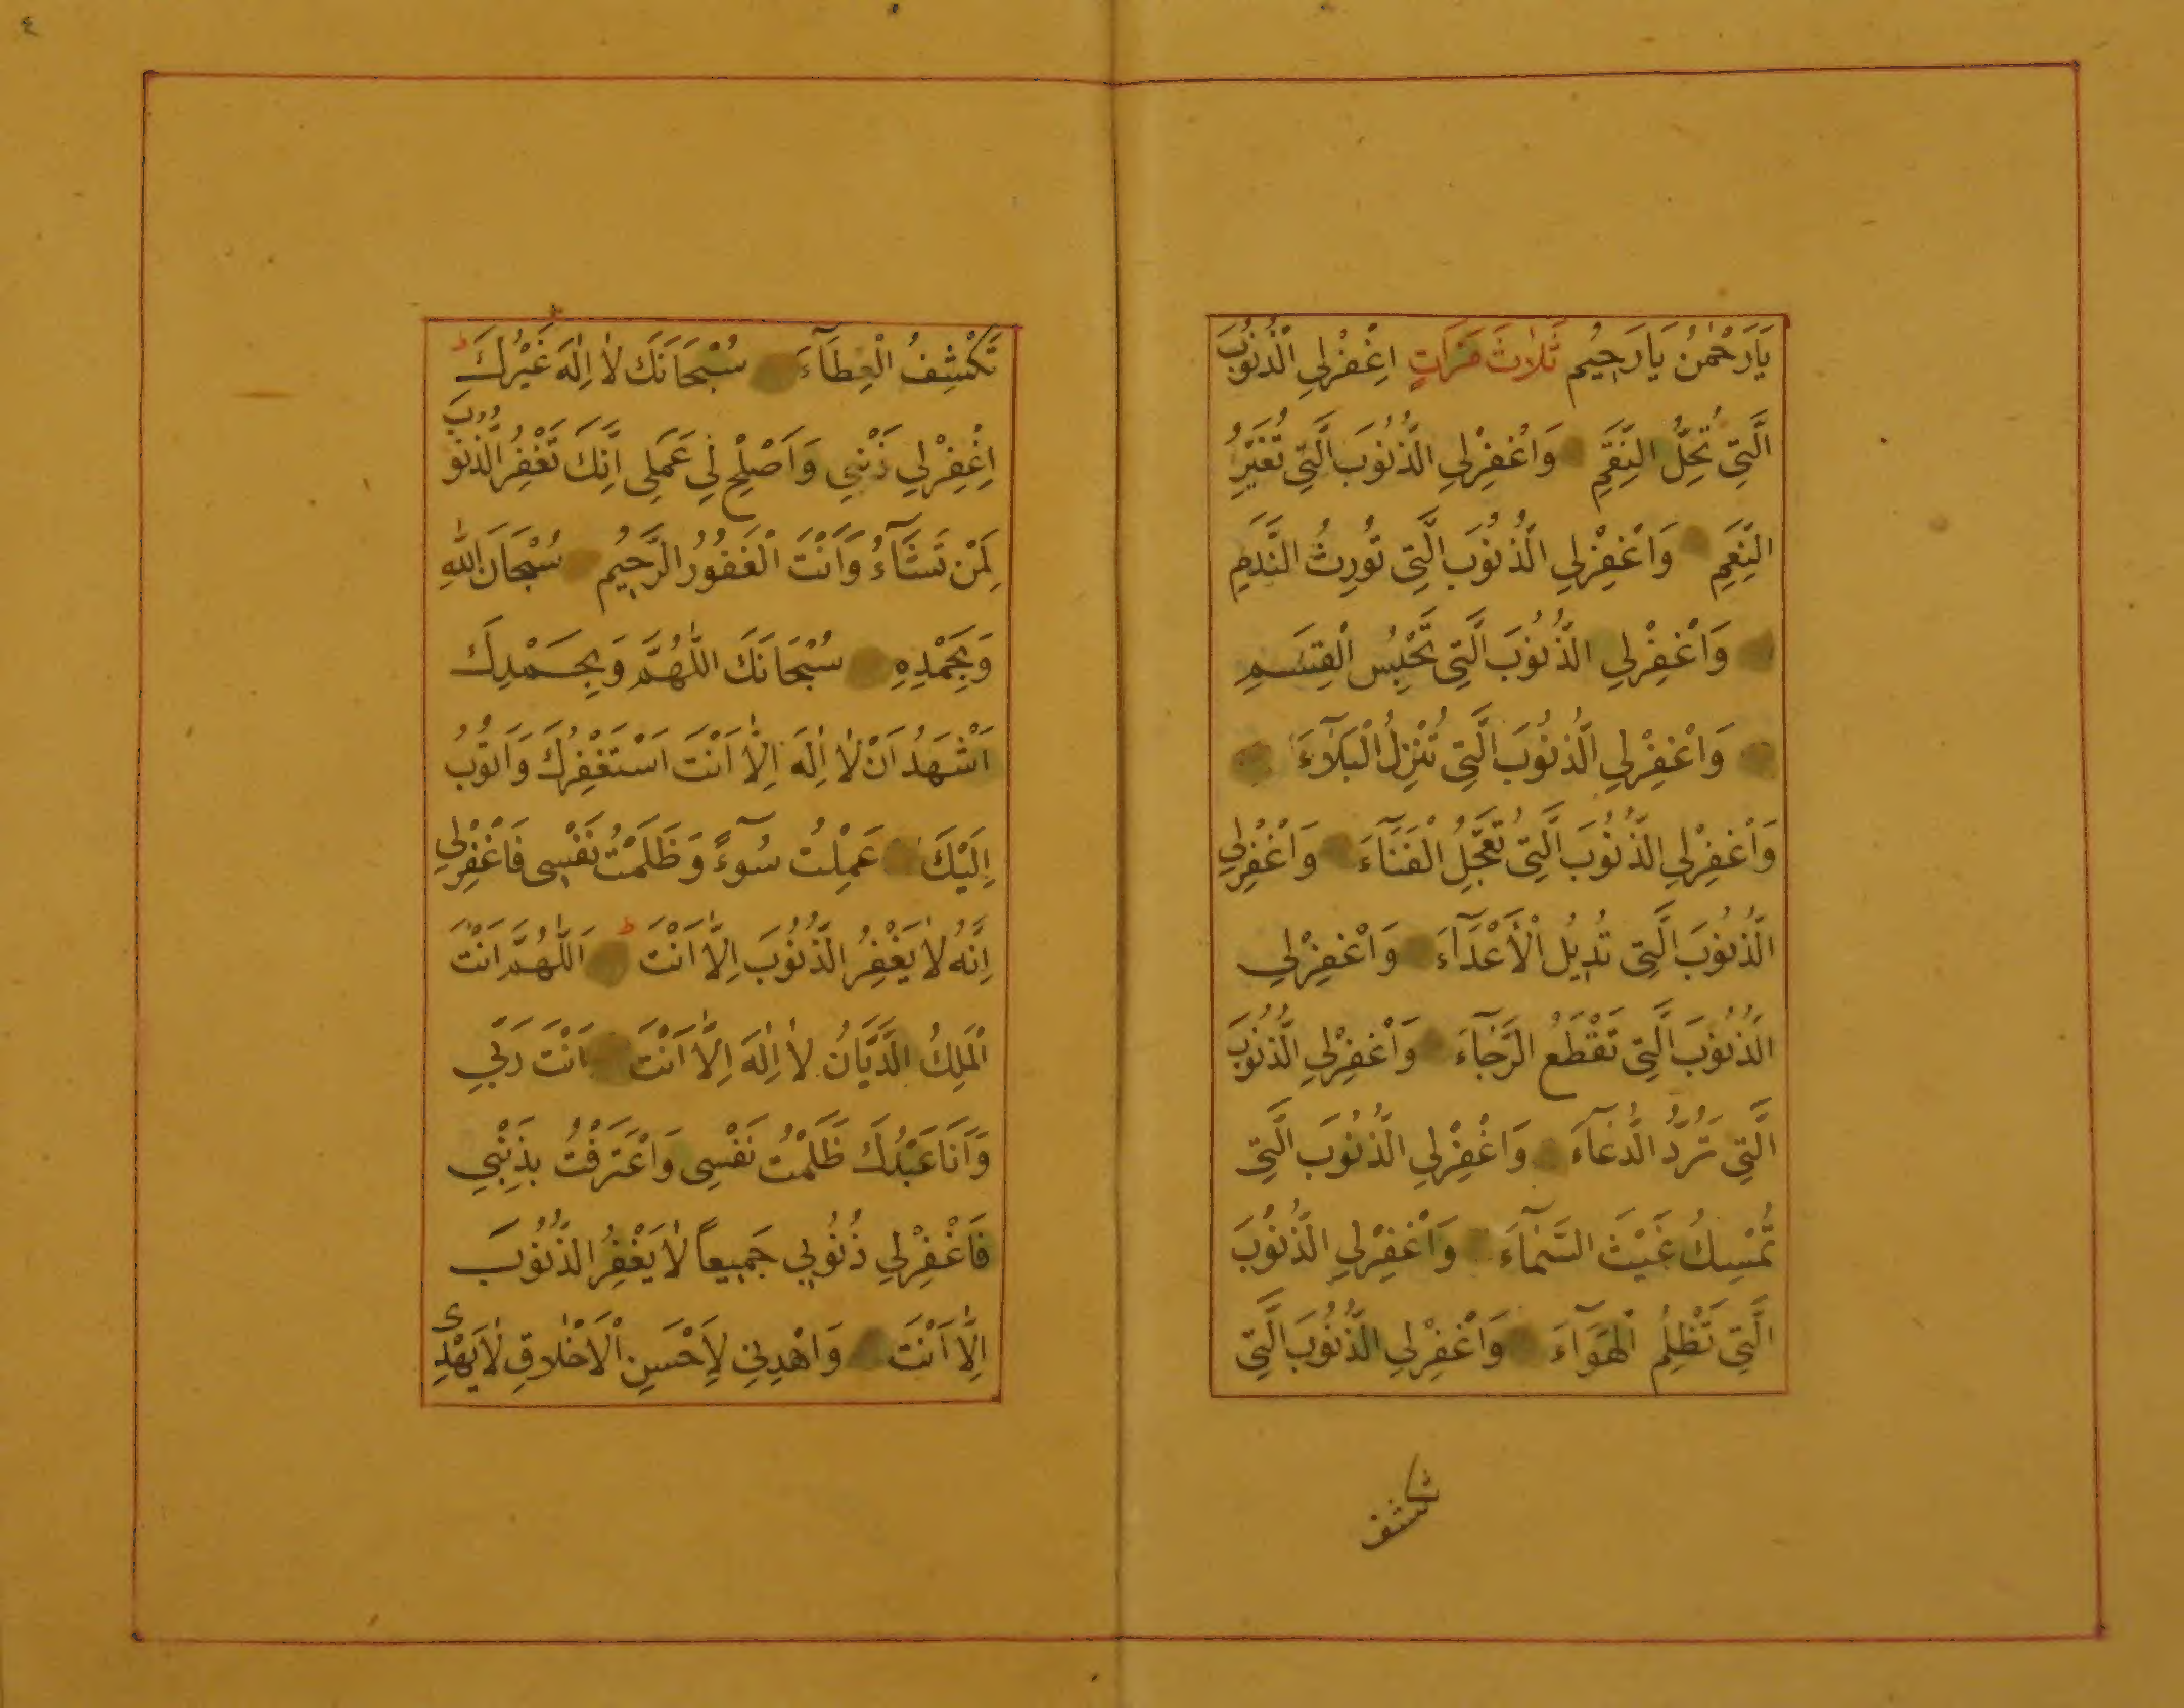 يَارَحْمٰنُ يَارَحِيْمُ ثَلٰاثَ مَرَّاتٍ اِغْفِرْلِي الذُّنُوْبَ
الَّتِي تُحِلُّ النِّقَمِ وَاغْفِرْلِي الذُّنُوْبَ الَّتِي تُغَيِّرُ
النِّعَمِ وَاغْفِرْلِي الذُّنُوْبَ الَّتِي تُوْرِثُ النَّدَمِ
وَاغْفِرْلِي الذُّنُوْبَ الَّتِي تَحْبِسُ الْقِسَمِ
وَاغْفِرْلِي الذُّنُوْبَ الَّتِي تُنْزِلُ الْبَلَآءَ
وَاغْفِرْلِي الذُّنُوْبَ الَّتِي تُعَجِّلُ الْفَنَآءَ وَاغْفِرْلِي
الذُّنُوْبَ الَّتِي تُدِيْلُ الْأَعْدَآءَ وَاغْفِرْلِي
الذُّنُوْبَ الَّتِي تَقْطَعُ الرَّجَآءَ وَاغْفِرْلِي الذُّنُوْبَ
الَّتِي تَرُدُّ الدُّعَآءَ وَاغْفِرْلِي الذُّنُوْبَ الَّتِي
تُمْسِكُ غَيْثَ السَّمَآءَ وَاغْفِرْلِي الذُّنُوْبَ
الَّتِي تَظْلِمُ الْهَوَآءَ وَاغْفِرْلِي الذُّنُوْبَ الَّتِي
تكشف
٤
تَكْشِفُ الْغِطَآءَ سُبْحَانَكَ لٰا اِلٰهَ غَيْرُكَ
اِغْفِرْلِي ذَنْبِي وَاَصْلِحْ لِي عَمَلِي اِنَّكَ تَغْفِرُ الذُّنُوْبَ
لِمَنْ تَشَآءُ وَاَنْتَ الْغَفُوْرُ الرَّحِيْمُ سُبْحَانَ اللّٰهِ
وَبِحَمْدِهِ سُبْحَانَكَ اللّٰهُمَّ وَبِحَمْدِكَ
اَشْهَدُ اَنْ لٰا اِلٰهَ اِلّٰا اَنْتَ اَسْتَغْفِرُكَ وَاَتُوْبُ
اِلَيْكَ عَمِلْتُ سُوْٓءً وَظَلَمْتُ نَفْسِي فَاغْفِرْلِي
اِنَّهُ لٰا يَغْفِرُ الذُّنُوْبَ اِلّٰا اَنْتَ اَللّٰهُمَّ اَنْتَ
الْمَلِكُ الدَّيَّانُ لٰا اِلٰهَ اِلّٰا اَنْتَ اَنْتَ رَبِّي
وَاَنَا عَبْدُكَ ظَلَمْتُ نَفْسِي وَاعْتَرَفْتُ بِذَنْبِي
فَاغْفِرْلِي ذُنُوْبِي جَمِيْعاً لٰا يَغْفِرُ الذُّنُوْبَ
اِلّٰا اَنْتَ وَاهْدِنِي لِاَحْسَنِ الْاَخْلٰاقِ لٰا يَهْدِى